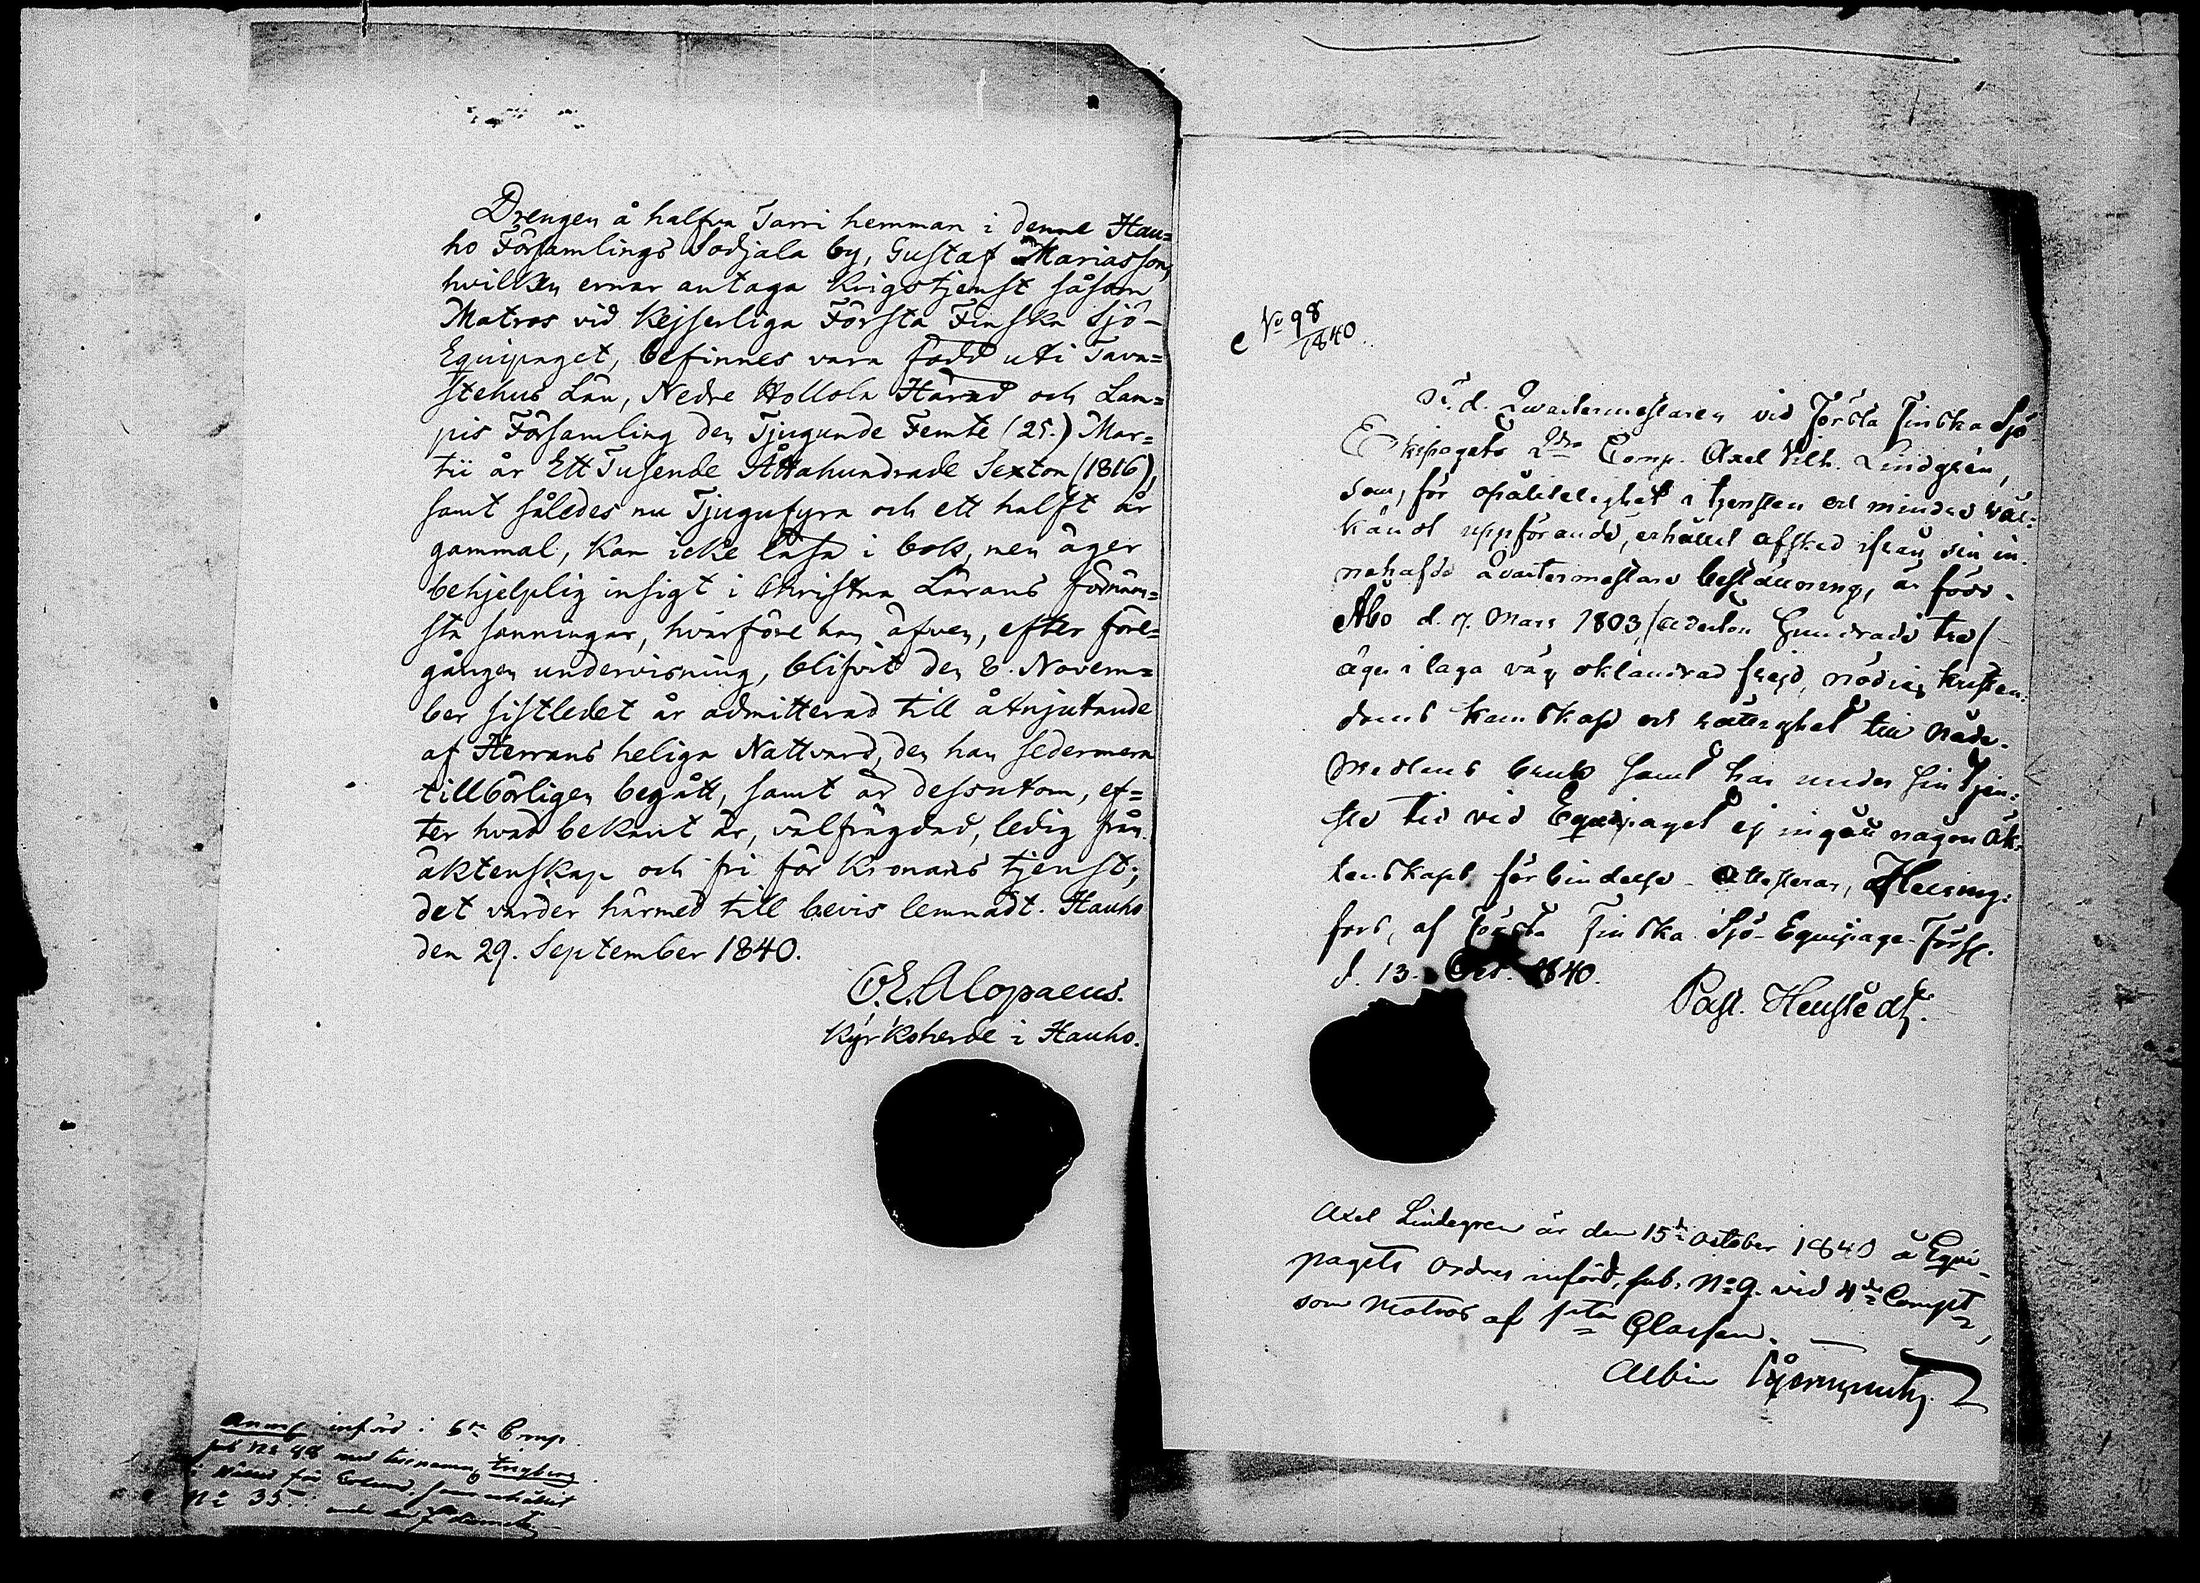 Drengen å halfva Tarri hemman i denne Hau=
ho Församlings Sotjala by, Gustaf Mariasson,
hvilken ernar antaga Krigstjenst såsom
Matros vid Kejserliga Första Finska Sjö-
Equipaget, befinnes vara född uti Tava=
stehus Län, Nedre Hollola Härad och Lam=
pis Församling den Tjugunde Femte (25.) Mar=
tii år Ett Tusende Åttahundrade Sexton (1816),
samt således nu Tjugufyra och ett halft år
gammal, kan icke läsa i bok, men äger
behjelplig insigt i Christna Lärans förnäm=
sta sanningar, hvarföre han äfven, efter före=
gången undervisning, blifvit den 8. Novem=
ber sistledet år admitterad till åtnjutande
af Herrans heliga Nattvard, den han sedermera
tillbörligen begått, samt är dessutom, ef=
ter hvad bekant är, välfrägdad, ledig från
äktenskap och fri för Kronans tjenst;
det varder härmed till bevis lemnadt. Hauho
den 29. September 1840.
O.E. Alopaeus.
Kyrkoherde i Hauho.
införd i 6te Comp.
sub No 48 med tillnamn
i stället för som erhållit
No 35.
No 98/1840.
F. d. Qvartermästaren vid Första Finska Sjö-
Ekipagets 2dra Comp. Axel Vilh. Lindgrén,
som, för opålitelighet i tjensten och mindre väl=
kändt uppförande, erhållit afsked ifrån sin in-
nehafde Qvartermästare beställning, är född i
Åbo d. 17. Mars 1803, /aderton hundrade tre/
äger i laga väg oklandrad frejd, nödig kristen-
doms kunskap och rättighet till Nåde-
medlens bruk samt har under sin Tjen=
ste tid vid Equipaget ej ingått någon Äk=
tenskaps förbindelse attesterar, Helsing=
fors, af Första Finska Sjö-Equipage-Förs.
d. 13. Oct. 1840.
Past. Henstedt.
Axel Lindegren är den 15de October 1840 å Equi-
pagets Ordres införd, sub. No 9. vid 4de Compt,
som Matros af 1sta Classen.
Albin